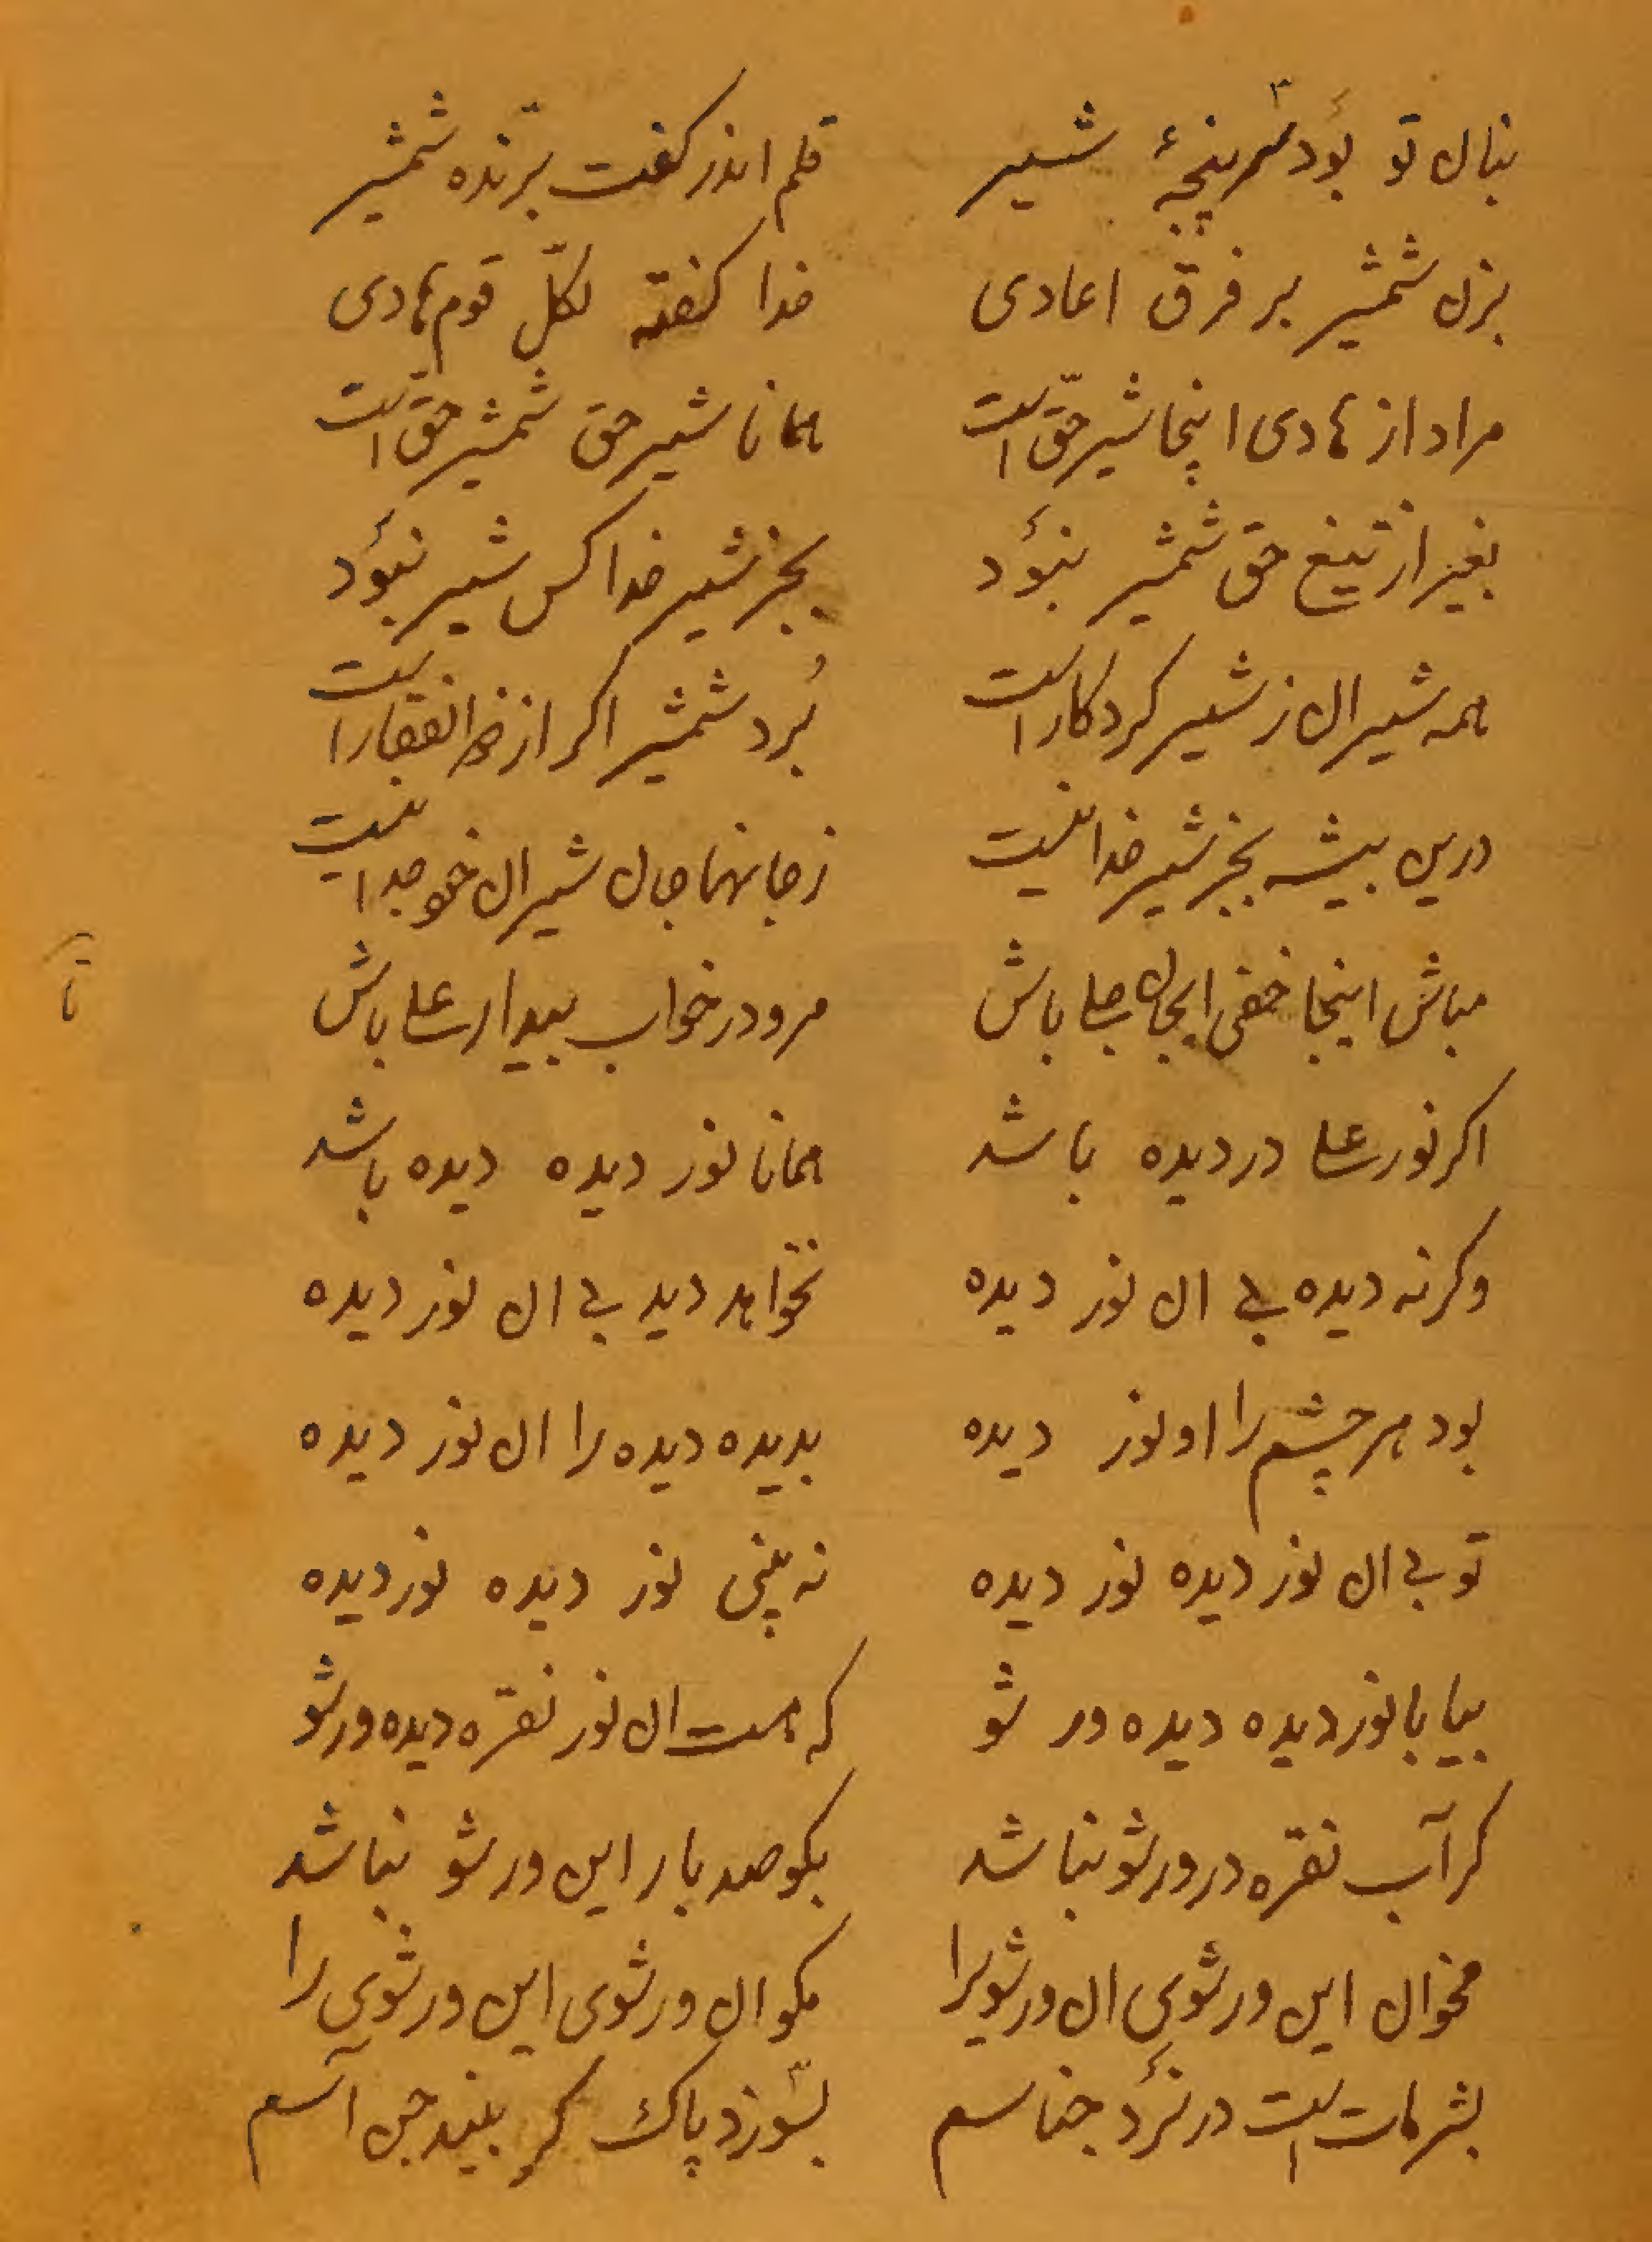 بنان تو بود سرپنجهٔ شیر قلم اندر کفت برّنده شمشیر
بزن شمشیر بر فرق اعادی خدا گفته لکلّ قوم هادی
مراد از هادی اینجا شیر حقّ است همانا شیر حق شمشیر حق است
بغیر از تیغ حق شمشیر نبود بجز شیر خدا کس شیر نبود
همه شیران ز شیر کردکار است بُرد شمشیر اکر از ذوالفقار است
درین بیشه بجز شیر خدا نیست ز جانها جان شیران خود جدا نیست
مباش اینجا خفی ایجان جلی باش مرو در خواب بیدار علی باش
اکر نور علی در دیده باشد همانا نور دیده دیده باشد
وکرنه دیده بی ان نور دیده نخواهد دید بی ان نور دیده
بود هر چشم را او نور دیده بدیده دیده را ان نور دیده
تو بی ان نور دیده نور دیده نه بینی نور دیده نور دیده
بیا با نور دیده دیده ور شو که هست ان نور نقره دیده ورشو
کر آب نقره در ورشو نباشد بکو صد بار این ورشو نباشد
مخوان این ورشوی ان ورشویرا مکو ان ورشوی این ورشوی را
بشر مات است در نرد جناسم بسوزد پاک کر بیند جن آسم